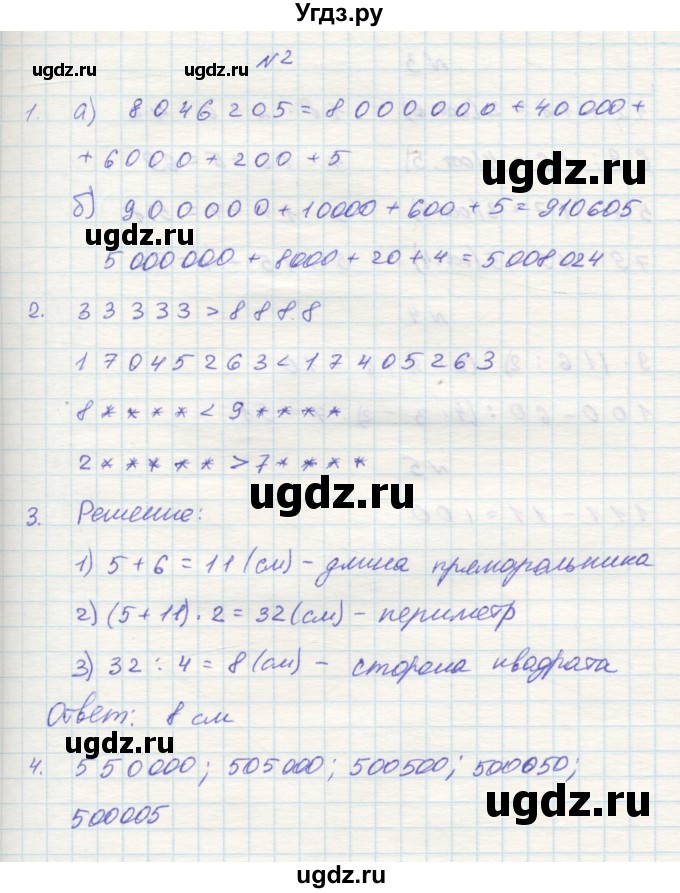 Угдз.ру
ugdz.ru ugdz.ru
N2
1. а) 8046205 = 8000000 + 40000 +
+ 6000 + 200 + 5
ugdz.ru
б) 900000 + 10000 + 600 + 5 = 910605
ugdz.ru
5000000 + 8000 + 20 + 4 = 5008024
2. 33333 > 8888
17045263 < 17405263
8**** < 9****
2***** > 7****
ugdz.ru
3. Решение:
1) 5 + 6 = 11 (см) - длина прямоугольника
2) (5 + 11) · 2 = 32 (см) - периметр
3) 32 : 4 = 8 (см) - сторона квадрата
Ответ: 8 см
ugdz.ru
4. 550000; 505000; 500500; 500050;
ugdz.ru
500005
ugdz.ru